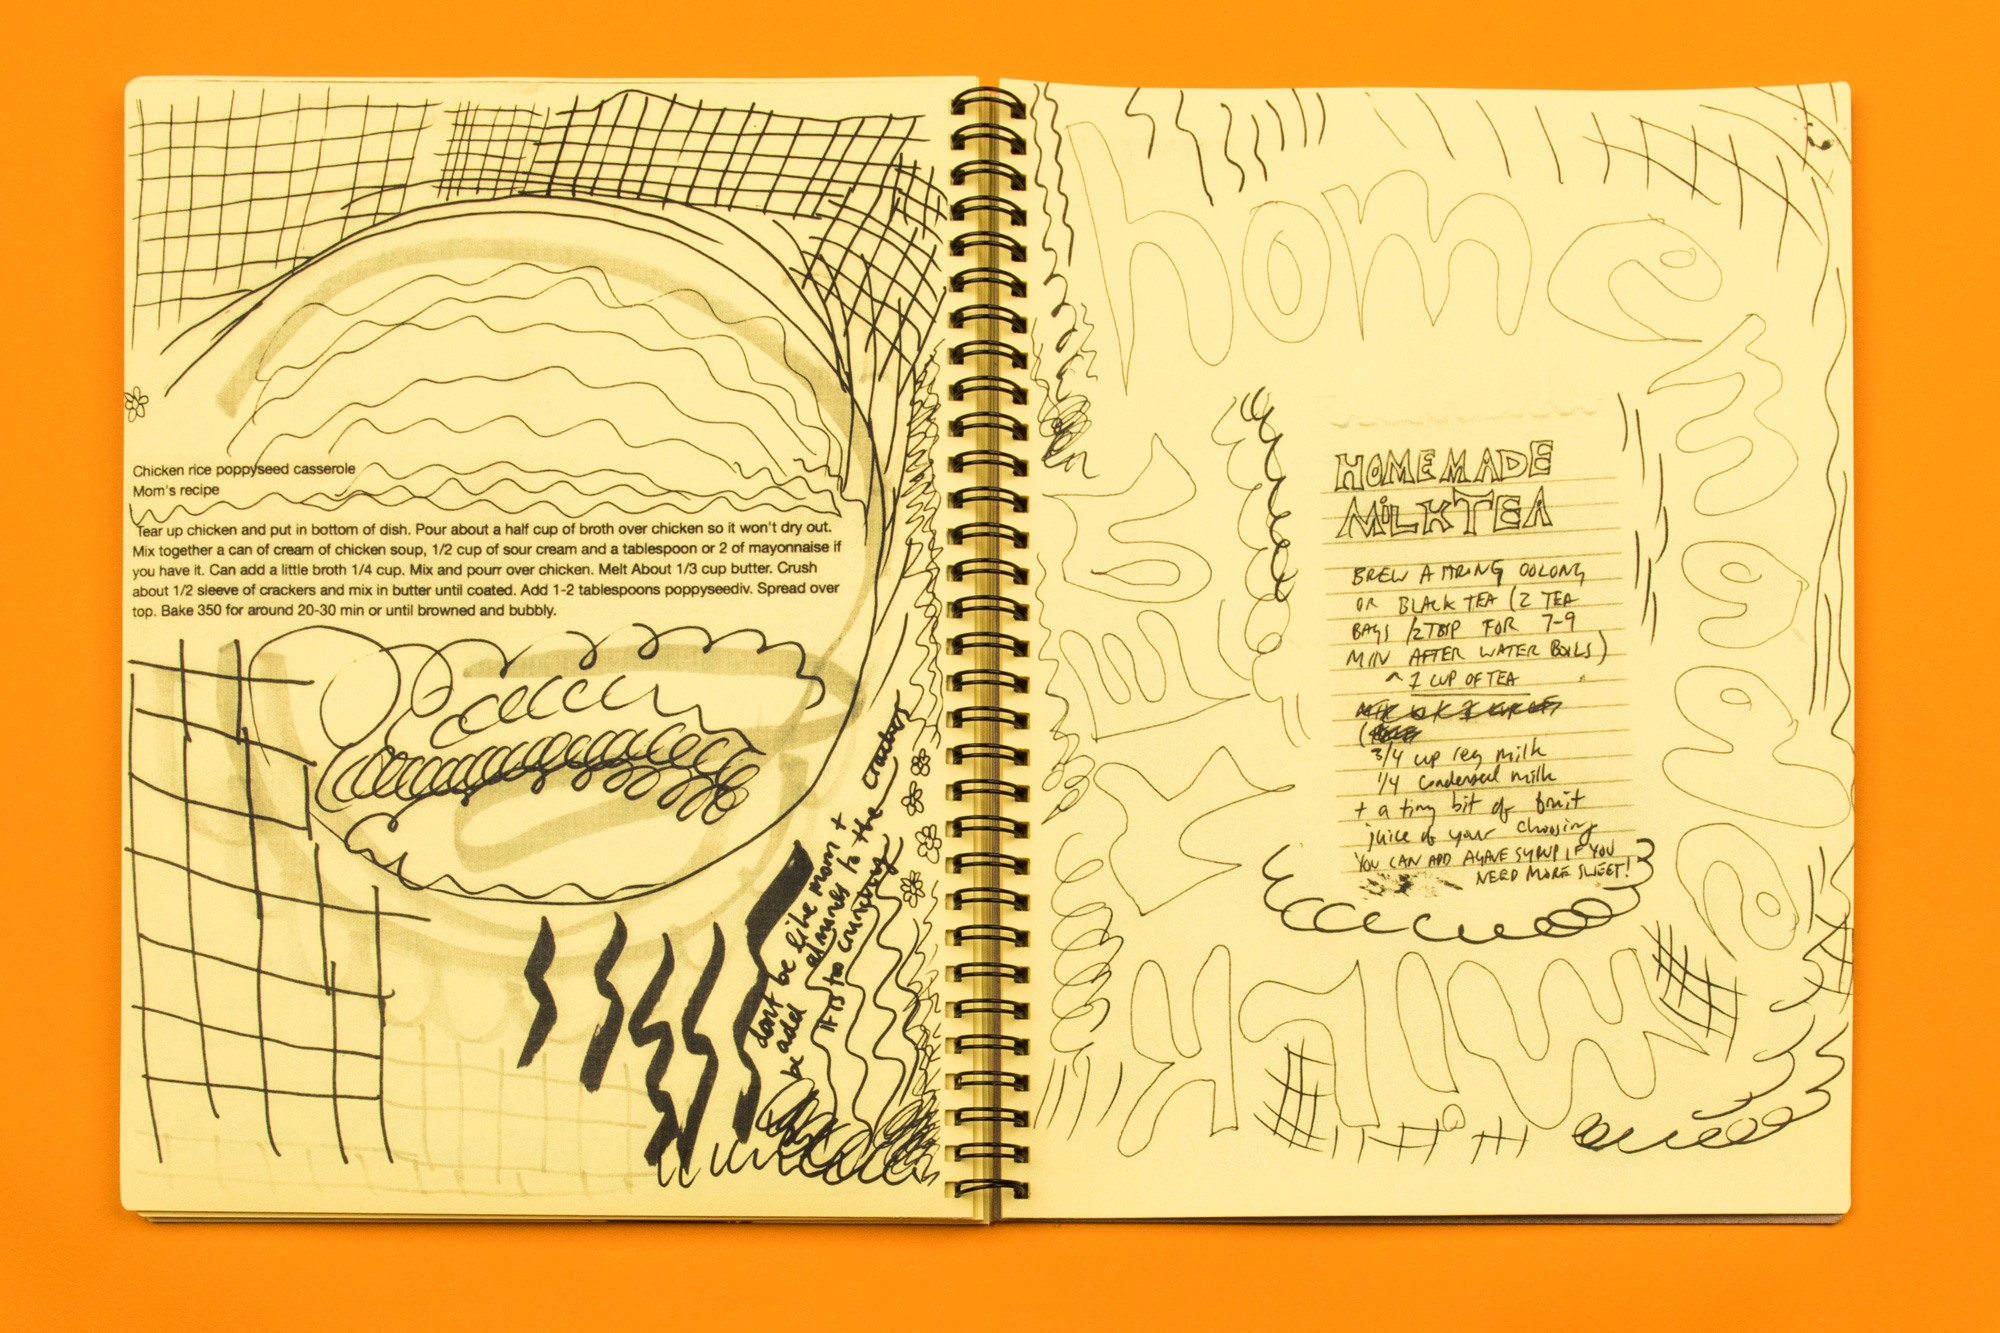 Chicken rice poppyseed casserole
Mom's recipe
Tear up chicken and put in bottom of dish. Pour about a half cup of broth over chicken so it won't dry out.
Mix together a can of cream of chicken soup, 1/2 cup of sour cream and a tablespoon or 2 of mayonnaise if
you have it. Can add a little broth 1/4 cup. Mix and pourr over chicken. Melt About 1/3 cup butter. Crush
about 1/2 sleeve of crackers and mix in butter until coated. Add 1-2 tablespoons poppyseediv. Spread over
top. Bake 350 for around 20-30 min or until browned and bubbly.
dont be like mom +
be add almonds to the crackers
IF IS too crunchy
home
made
milk
TEA
HOMEMADE
MiLK TEA
BREW A STRONG OOLONG
OR BLACK TEA (2 TEA
BAGS /2TBSP FOR 7-9
MIN AFTER WATER BOILS)
^ 1 CUP OF TEA
3/4 cup reg milk
1/4 condensed milk
+ a tiny bit of fruit
juice of your choosing
YOU CAN ADD AGAVE SYRUP IF YOU
NEED MORE SWEET!